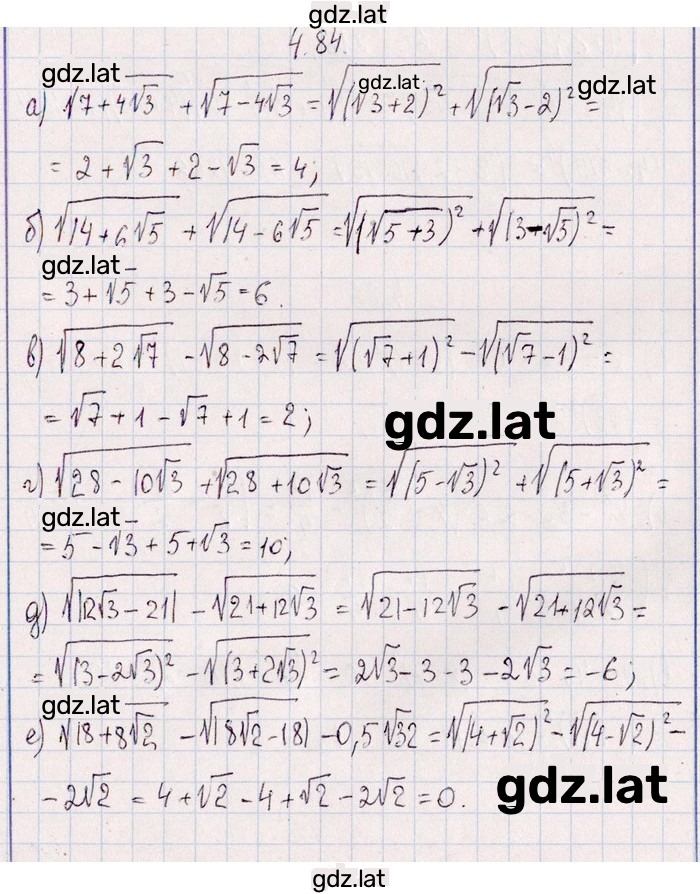 gdz.lat
4.84.
gdz.lat gdz.lat gdz.lat
а) √(7+4√3) + √(7-4√3) = √((√3+2)²) + √((√3-2)²) =
= 2+√3 + 2-√3 = 4;
б) √(14+6√5) + √(14-6√5) = √((√5+3)²) + √((3-√5)²) =
gdz.lat
= 3+√5 + 3-√5 = 6.
в) √(8+2√7) - √(8-2√7) = √((√7+1)²) - √((√7-1)²) =
= √7+1-√7+1 = 2;
gdz.lat
г) √(28-10√3) + √(28+10√3) = √((5-√3)²) + √((5+√3)²) =
gdz.lat
= 5-√3+5+√3 = 10;
д) √|12√3-21| - √(21+12√3) = √(21-12√3) - √(21+12√3) =
= √((3-2√3)²) - √((3+2√3)²) = 2√3-3-3-2√3 = -6;
gdz.lat
е) √(18+8√2) - √|8√2-18| - 0,5√32 = √((4+√2)²) - √((4-√2)²) -
- 2√2 = 4+√2-4+√2-2√2 = 0.
gdz.lat
gdz.lat